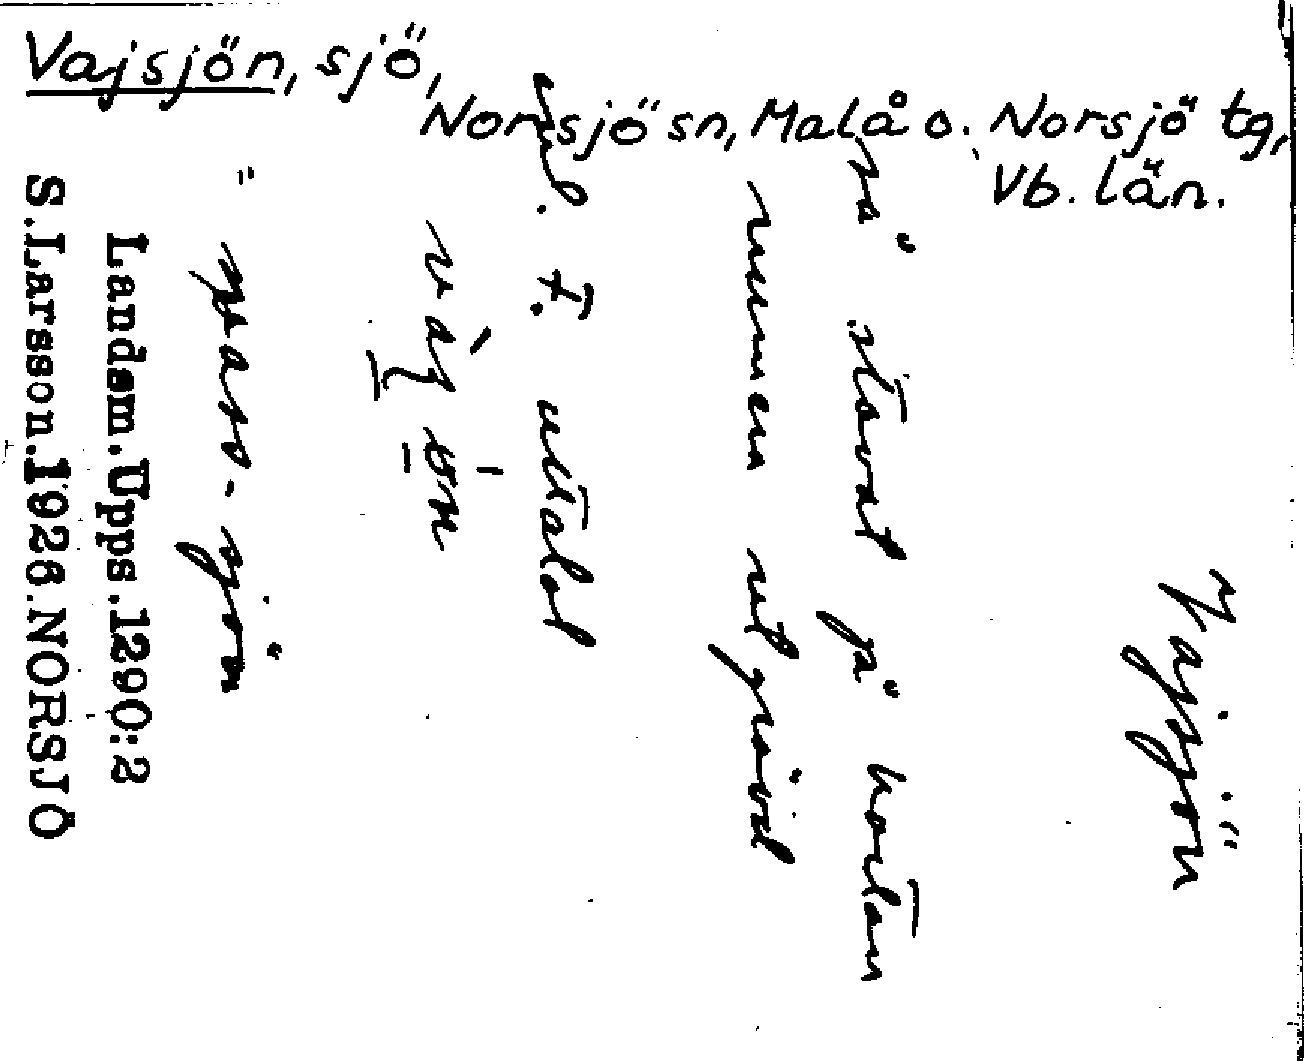 Vajsjön, sjö,
Norsjö sn, Malå o. Norsjö tg,
Vb. län.
Vajsjön
så stavat på kartan
numera utgrävd
enl. F. uttalat
" vass-sjön
Landsm.Upps.1290:2
S.Larsson.1928.NORSJÖ